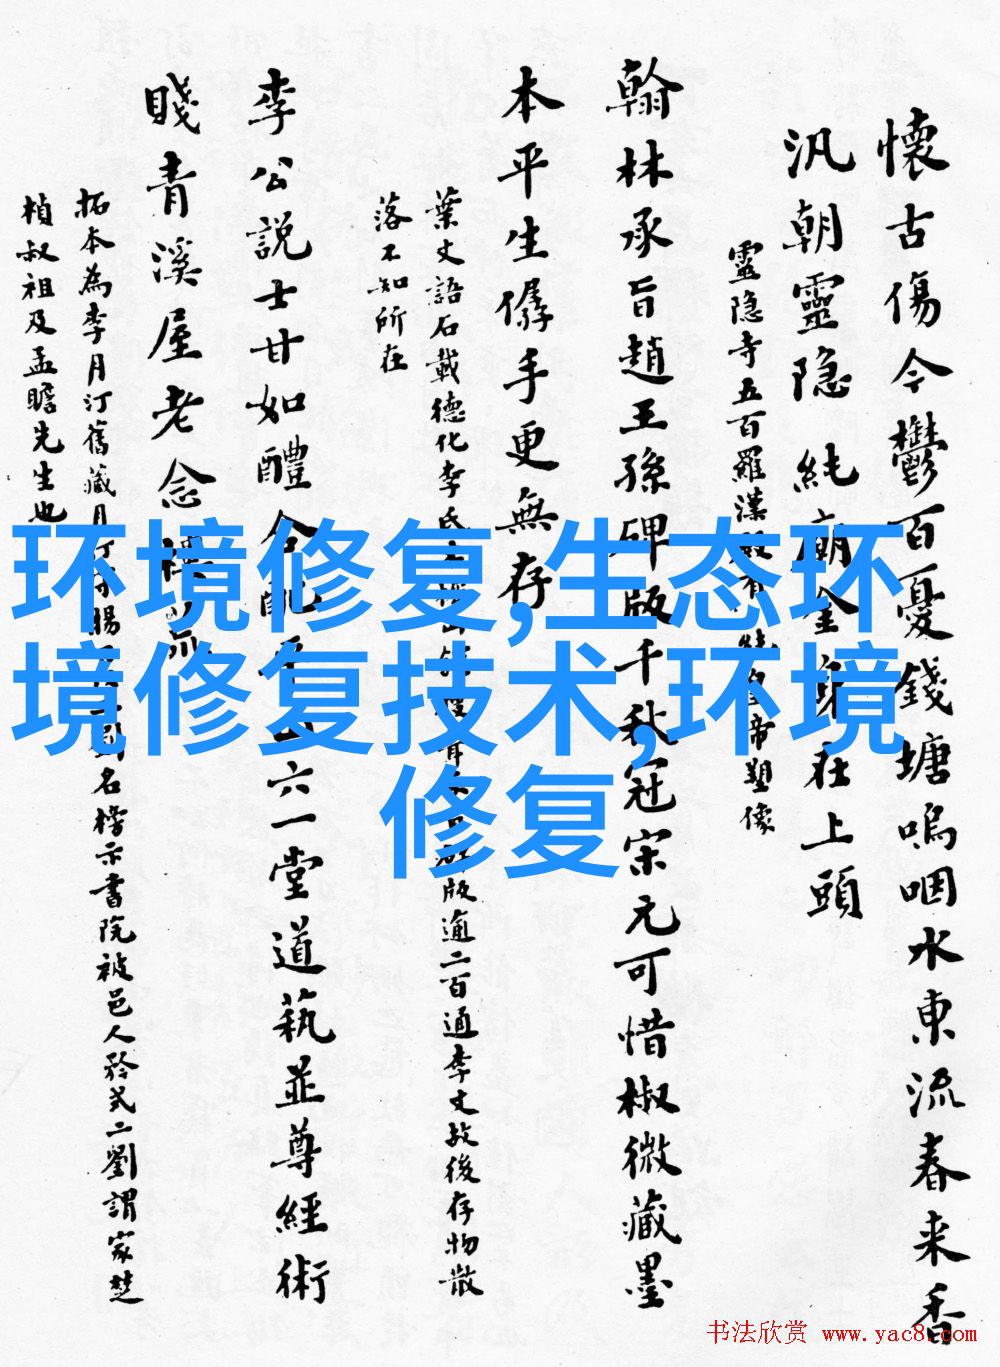 懷古傷今鬱百憂錢塘嗚咽水東流春来香
汎朝靈隐純廟金身在上頭
靈隐寺五百羅漢
皇帝塑像
翰林承旨趙王孫碑版千秋冠宋元可惜椒微藏墨
本平生僝手更無存
葉文語石載德化李氏
版逾二百通李文故後存物散
落不知所在
李公説士甘如醴合配
六一堂道藝並尊經術
賤青溪屋老念
拓本為李月汀舊藏月
名榜示書院被邑人
式二劉謂家楚
楨叔祖及孟瞻先生也
环境修复,生态环
境修复技术,环境
修复
书法欣赏 www.yac8.com